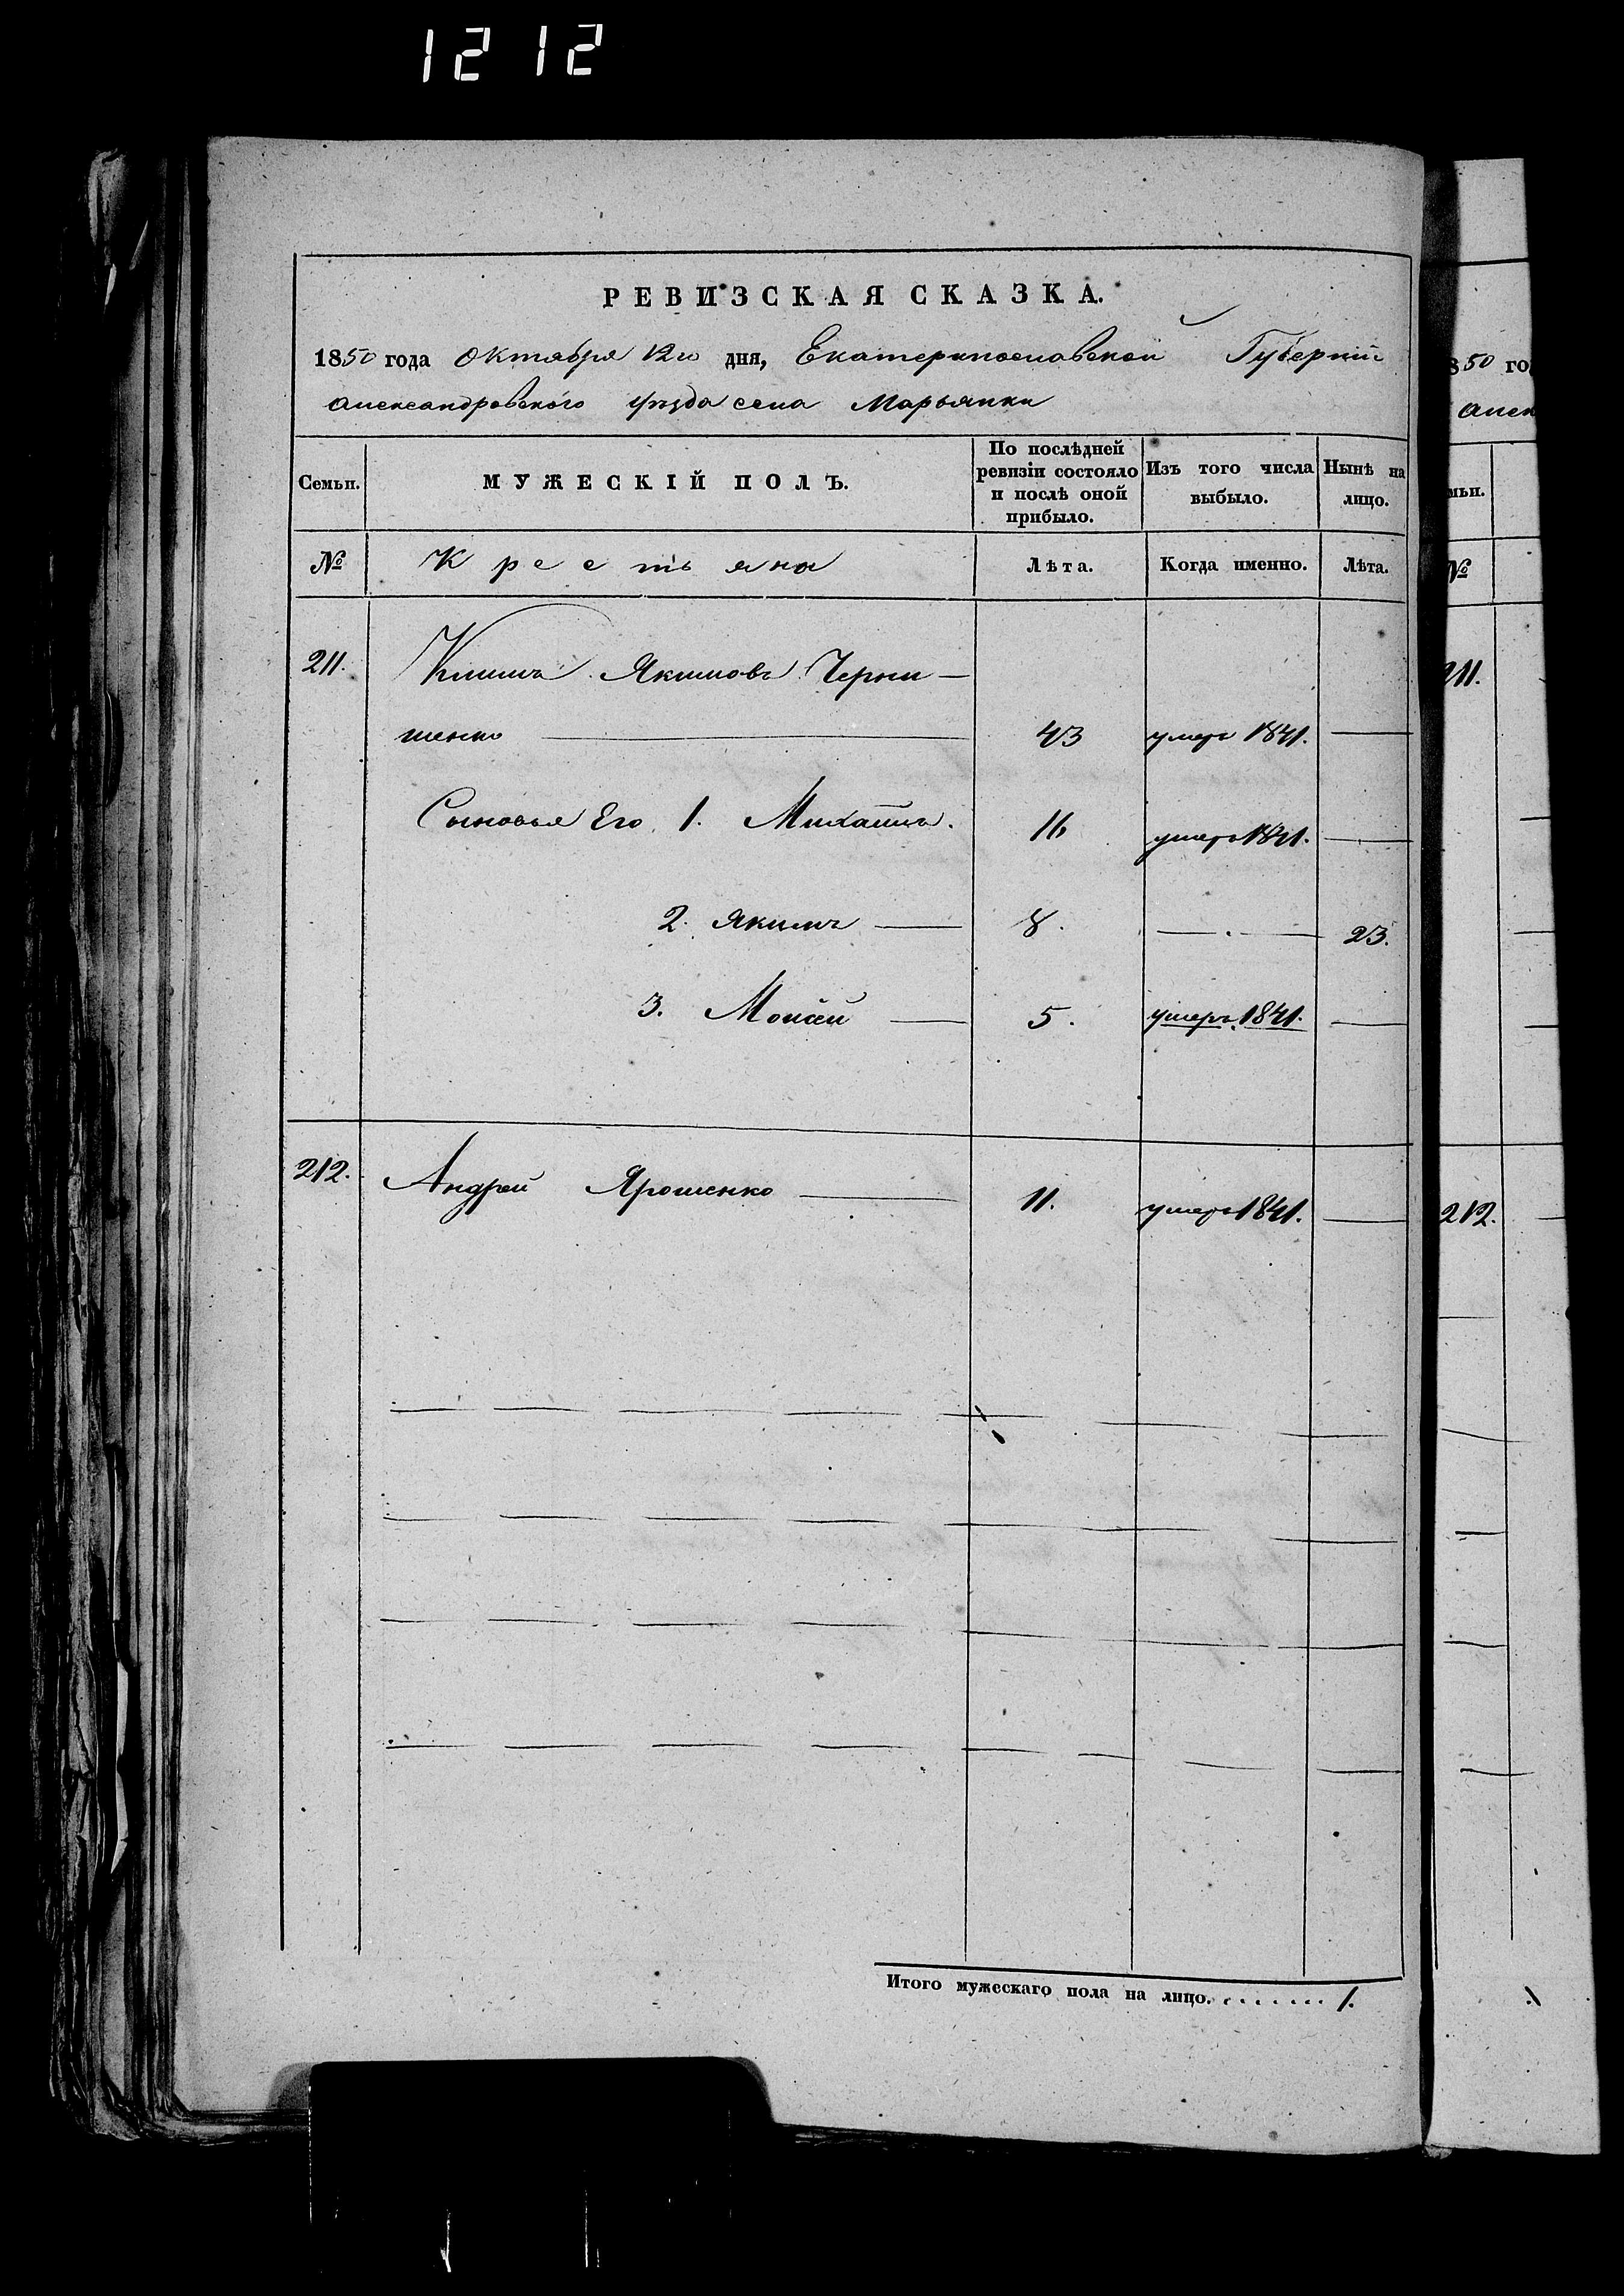 1212
РЕВИЗСКАЯ СКАЗКА.
1850 года Октября 12го дня, Екатеринославской Губерніи
Александровского уѣзда села Марьянки
Семьи.
МУЖЕСКІЙ ПОЛЪ.
По послѣдней ревизіи состояло и послѣ оной прибыло.
Изъ того числа выбыло.
Нынѣ на лицо.
№ Крестьяна Лѣта. Когда именно. Лѣта.
211. Климъ Якимовъ Черни-
шенко 43 умеръ 1841. —
Сыновья Его 1. Михаилъ. 16 умеръ 1841. —
2. Якимъ — 8. — 23.
3. Моисей — 5. умеръ 1841. —
212. Андрей Ярошенко — 11. умеръ 1841. —
Итого мужескаго пола на лицо. 1.
850 го
Алек
мьи.
№
211.
212.